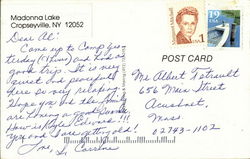 Madonna Lake
Cropseyville, NY 12052
Dear Al:
Came up to Camp yes
terday (Thurs) and had a
good trip. It is very
quiet and peaceful
here so very relaxing.
Hope you and the family
are having a good Summer.
How is
Yes and I are getting old!
Love,
Caroline
1
19
USA
POST CARD
Mr Albert Tetrault
656 Main Street
Acushnet,
Mass.
02743-1102